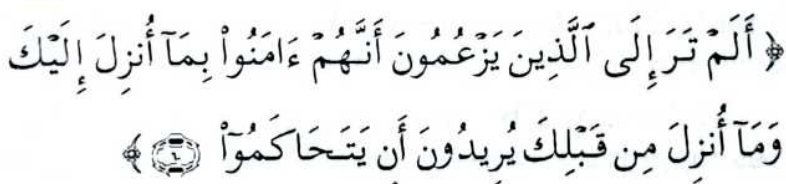 ﴿ أَلَمْ تَرَ إِلَى ٱلَّذِينَ يَزْعُمُونَ أَنَّهُمْ ءَامَنُوا۟ بِمَآ أُنزِلَ إِلَيْكَ
وَمَآ أُنزِلَ مِن قَبْلِكَ يُرِيدُونَ أَن يَتَحَاكَمُوٓا۟ ﴾